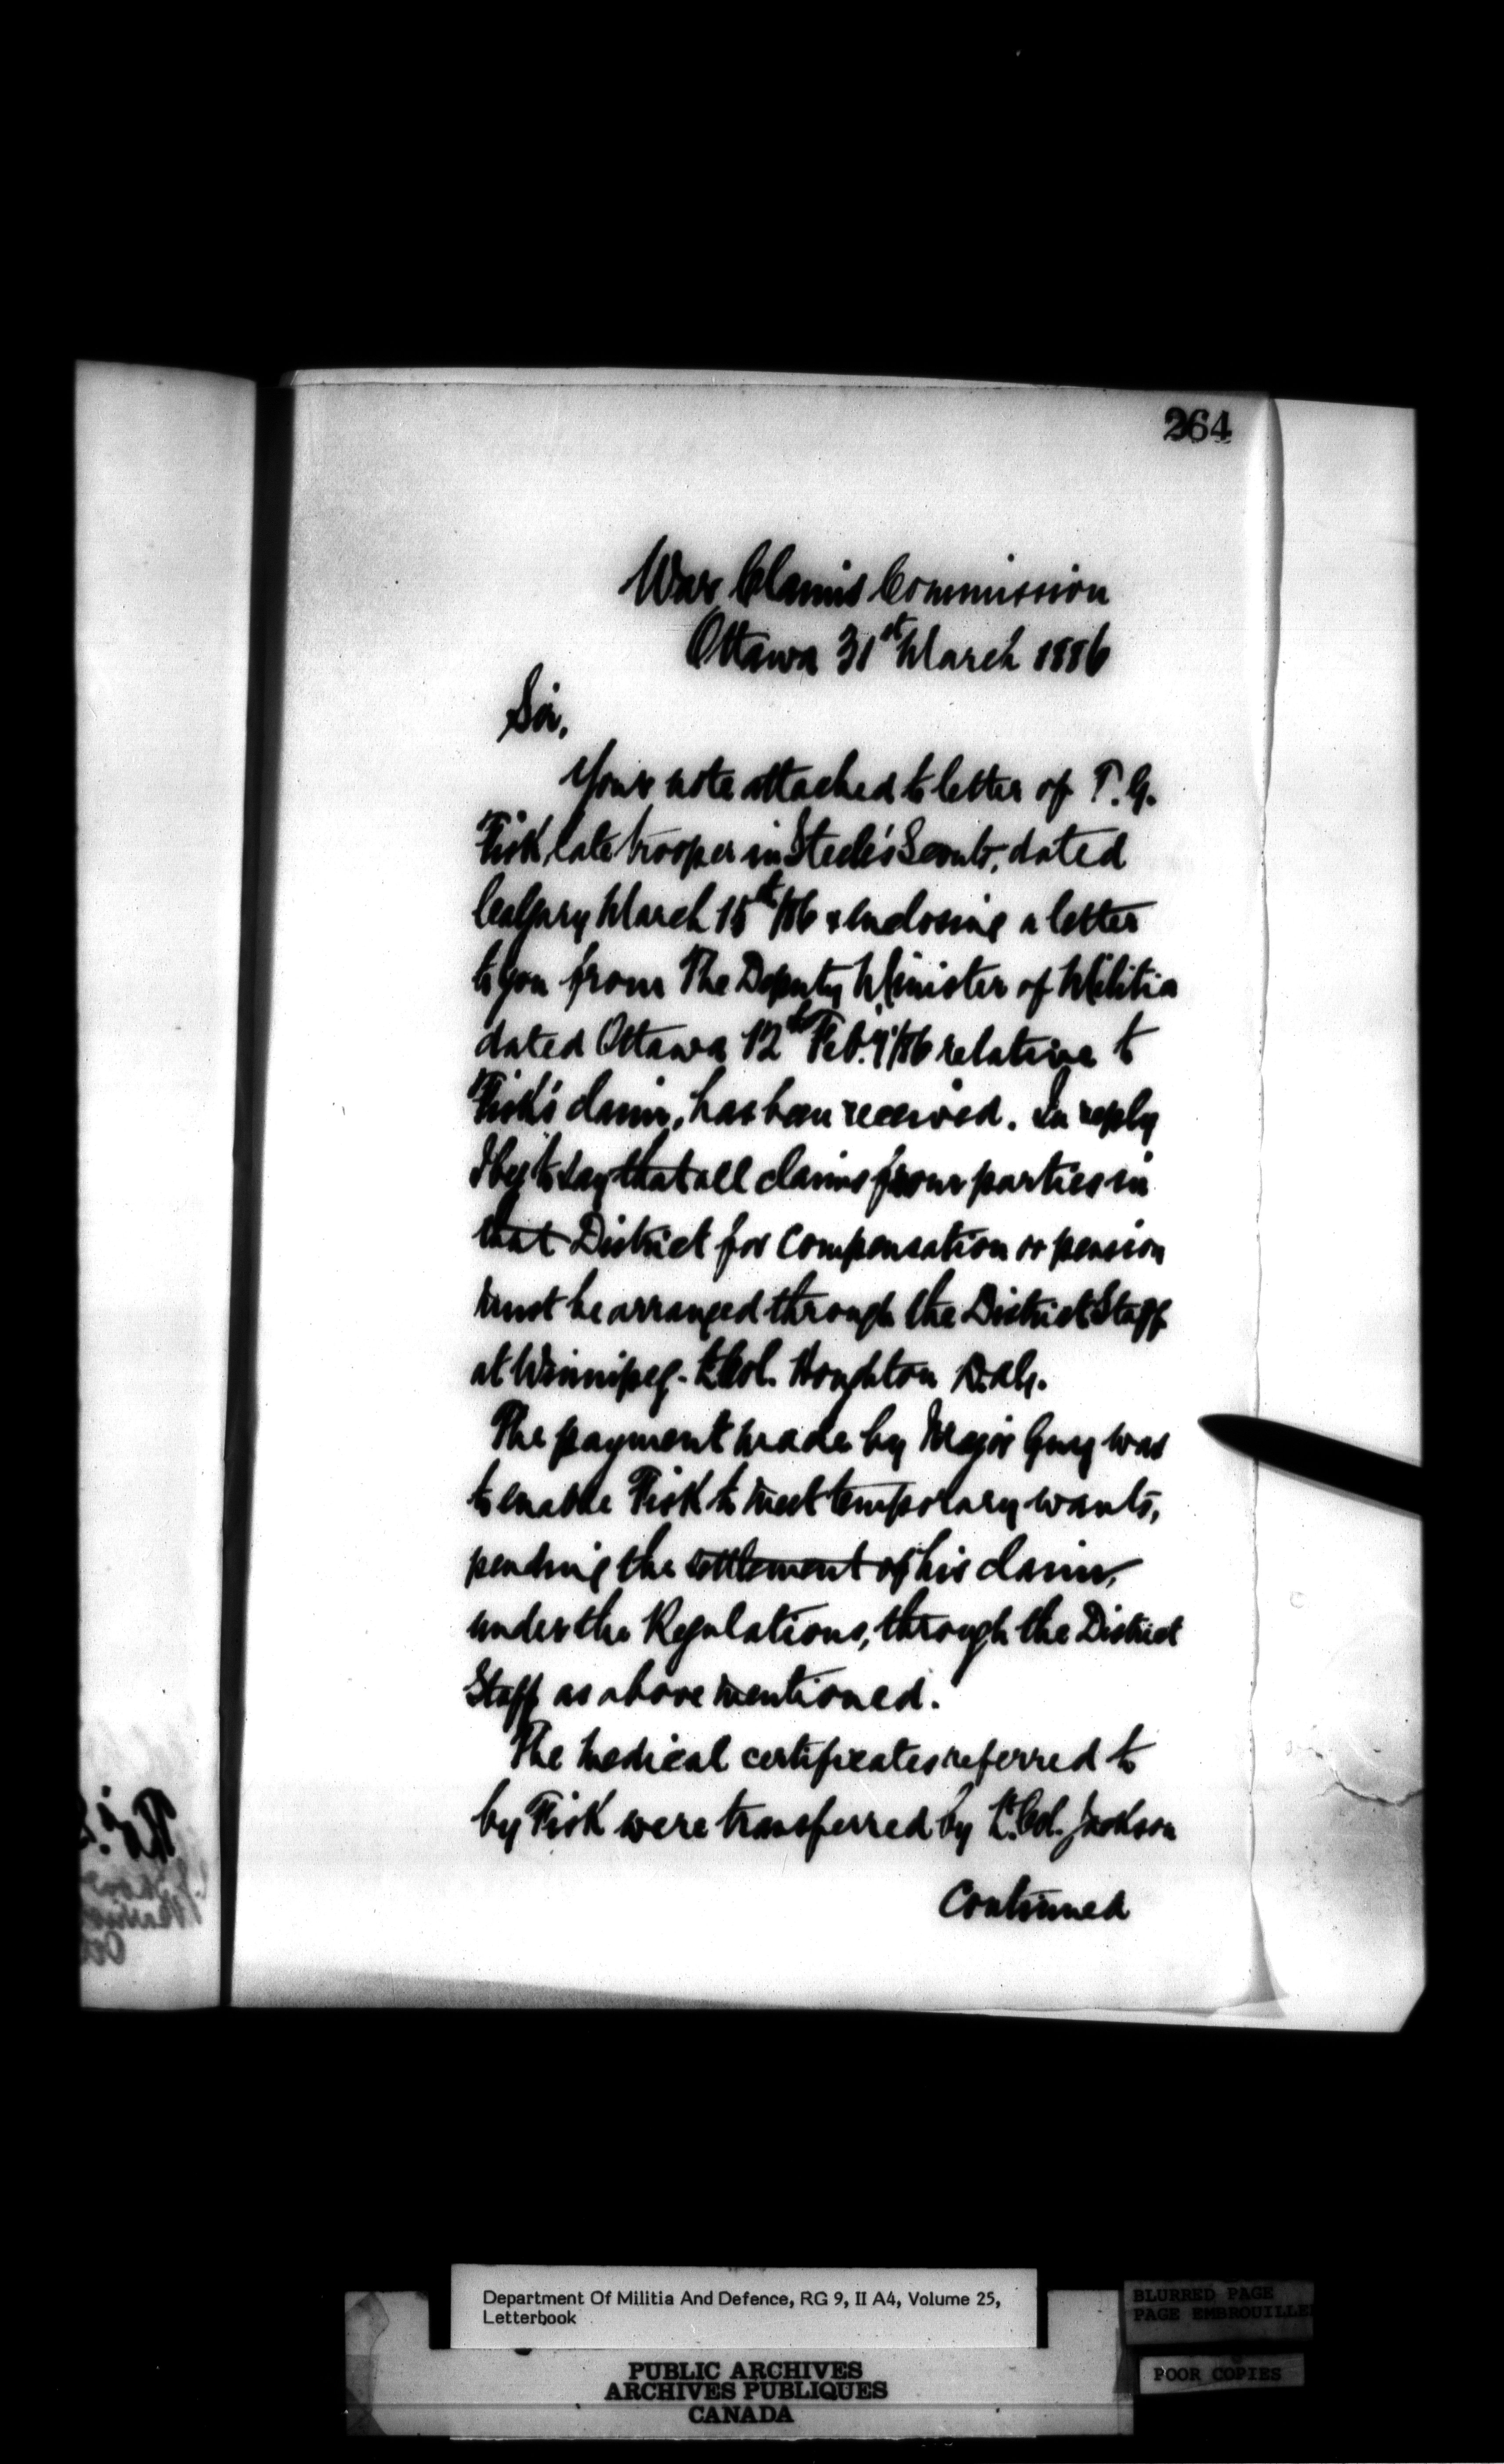 264
War Claims Commission
Ottawa 31st March 1886
Sir,
Your note attached to letter of T. G.
Fisk, late trooper in Steele's Scouts, dated
Calgary March 15th/86 & enclosing a letter
to you from The Deputy Minister of Militia
dated Ottawa 12th Feby/86 relative to
Fisk's claim, has been received. In reply
I beg to say that all claims from parties in
that District for compensation or pension
must be arranged through the District Staff
at Winnipeg - Lt Col. Houghton D.A.G.
The payment made by Major Guy was
to enable Fisk to meet temporary wants,
pending the settlement of his claim,
under the Regulations, through the District
Staff as above mentioned.
The medical certificates referred to
by Fisk were transferred by Lt. Col. Jackson
Continued
Department Of Militia And Defence, RG 9, II A4, Volume 25,
Letterbook
BLURRED PAGE
PAGE EMBROUILLE
POOR COPIES
PUBLIC ARCHIVES
ARCHIVES PUBLIQUES
CANADA